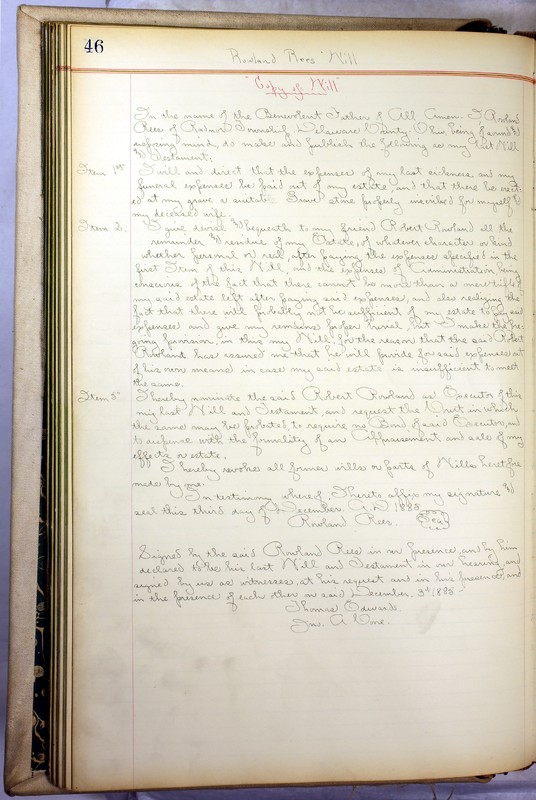 46
Rowland Rees' Will
"Copy of Will"
In the name of the Benevolent Father of All Amen. I Rowland
Rees of Radnor Township Delaware County Ohio, being of sound &
disposing mind, do make and publish the following as my last Will
& Testament;
Item 1st I will and direct that the expenses of my last sickness, and my
funeral expenses be paid out of my estate, and that there be erect-
ed at my grave a suitable Grave stone properly inscribed for myself &
my deceased wife
Item 2. I give, devise & bequeath to my friend Robert Rowland all the
remainder & residue of my Estate, of whatever character or kind
whether personal or real, after paying the expenses specified in the
first Item of this Will, and the expenses of Administration, being
conscious of the fact that there cannot be more than a mere trifle of
my said estate left after paying said expenses, and also realizing the
fact that there will probably not be sufficient of my estate to pay said
expenses and give my remains proper burial, but I make the fore-
going provision, in this my Will, for the reason that the said Robert
Rowland has assured me that he will provide for said expenses out
of his own means in case my said estate is insufficient to meet
the same.
Item 3" I hereby nominate the said Robert Rowland as Executor of this
my last Will and Testament, and request the Court in which
the same may be probated, to require no Bond of said Executor, and
to dispense with the formality of an Appraisement and sale of my
effects or estate.
I hereby revoke all former wills or parts of Wills heretofore
made by me.
In testimony whereof, I hereto affix my signature &
seal this third day of December A.D. 1885.
Rowland Rees. Seal
Signed by the said Rowland Rees in our presence, and by him
declared to be his last Will and Testament in our hearing, and
signed by us as witnesses, at his request and in his presence, and
in the presence of each other on said December 3d 1885"
Thomas Edwards.
Jno. A. Cone.